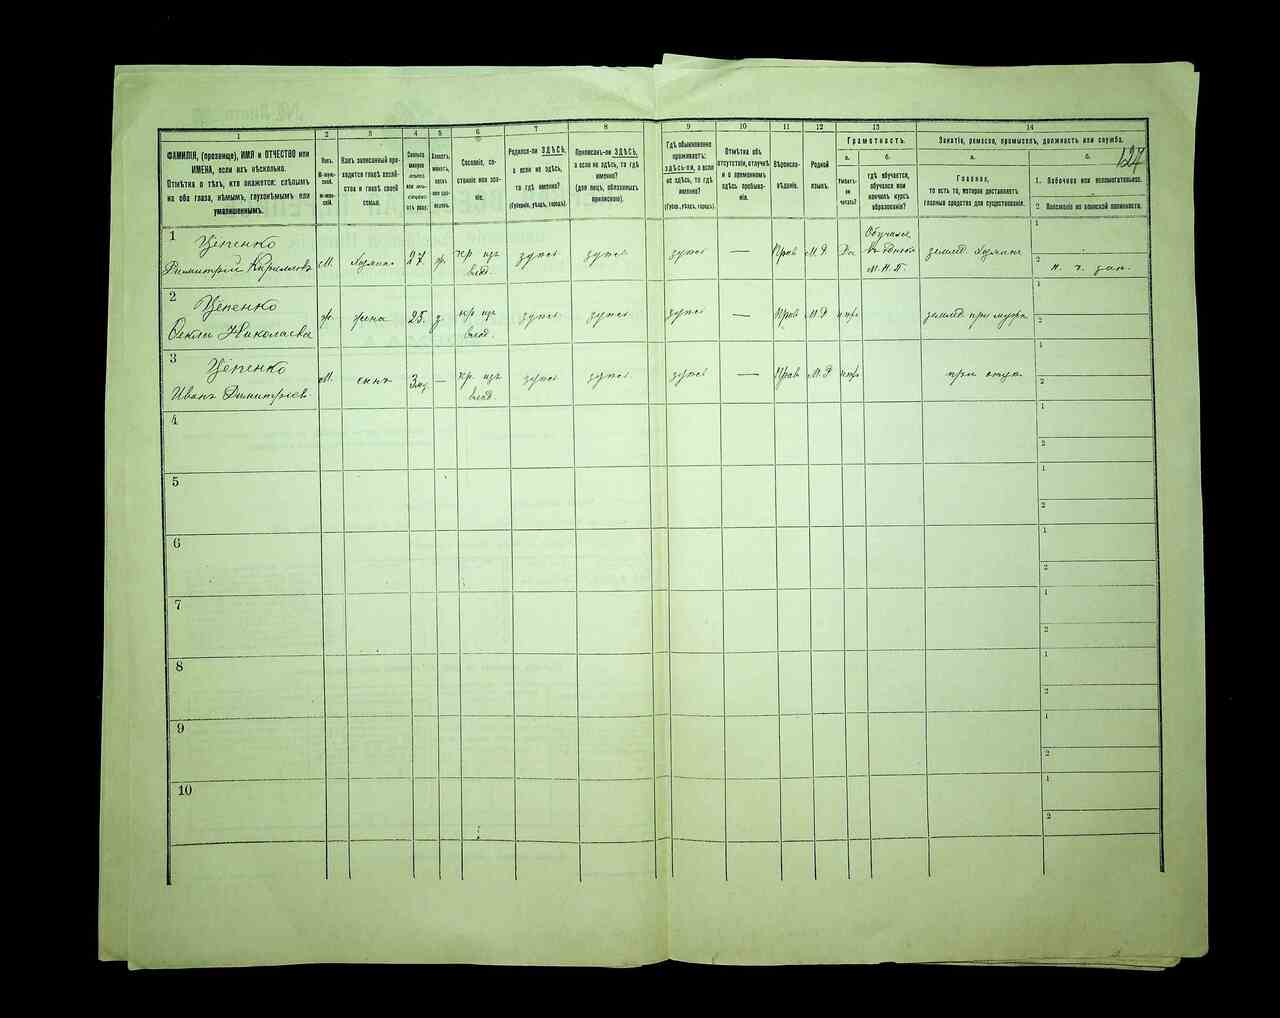 127
1
2
3
4
5
6
7
8
9
10
11
12
13
14
ФАМИЛІЯ, (прозвище), ИМЯ и ОТЧЕСТВО или
ИМЕНА, если ихъ нѣсколько.
Отмѣтка о тѣхъ, кто окажется: слѣпымъ
на оба глаза, нѣмымъ, глухонѣмымъ или
умалишеннымъ.
Полъ.
М-муж-
ской.
Ж-жен-
скій.
Какъ записанный при-
ходится главѣ хозяй-
ства и главѣ своей
семьи.
Сколько
минуло
лѣтъ
Холостъ,
женатъ,
Сословіе, со-
стояніе или зва-
ніе.
Родился-ли ЗДѢСЬ,
а если не здѣсь,
то гдѣ именно?
(Губернія, уѣздъ, городъ).
Приписанъ-ли ЗДѢСЬ,
а если не здѣсь, то гдѣ
именно?
(для лицъ, обязанныхъ
припискою).
Гдѣ обыкновенно
проживаетъ:
здѣсь-ли, а если
не здѣсь, то гдѣ
именно?
(Губер., уѣздъ, городъ).
Отмѣтка объ
отсутствіи, отлучкѣ
и о временномъ
здѣсь пребыва-
ніи.
Вѣроиспо-
вѣданіе.
Родной
языкъ.
Грамотность.
а.
б.
Умѣетъ-
ли
читать?
гдѣ обучается,
обучался или
кончилъ курсъ
образованія?
Занятіе, ремесло, промыселъ, должность или служба.
а.
б.
Главное,
то есть то, которое доставляетъ
главныя средства для существованія.
1. Побочное или вспомогательное.
2. Положеніе по воинской повинности.
1
Цепенко
Димитрій Кирилловъ
М. хозяинъ 27 ж. кр. изъ
влад.
здѣсь здѣсь здѣсь — Прав М.Р Да
Обучался
М.Н.П.
землед. хозяинъ
1
2
2
Цепенко
Фекла Николаева
ж. жена 25. з. кр. изъ
влад.
здѣсь здѣсь здѣсь — Прав М.Р нѣтъ
землед при мужѣ
1
2
3
Цепенко
Иванъ Димитріев
М. сынъ — кр. изъ
влад.
здѣсь здѣсь здѣсь — Прав М.Р нѣтъ
при отцѣ
1
2
4
1
2
5
1
2
6
1
2
7
1
2
8
1
2
9
1
2
10
1
2